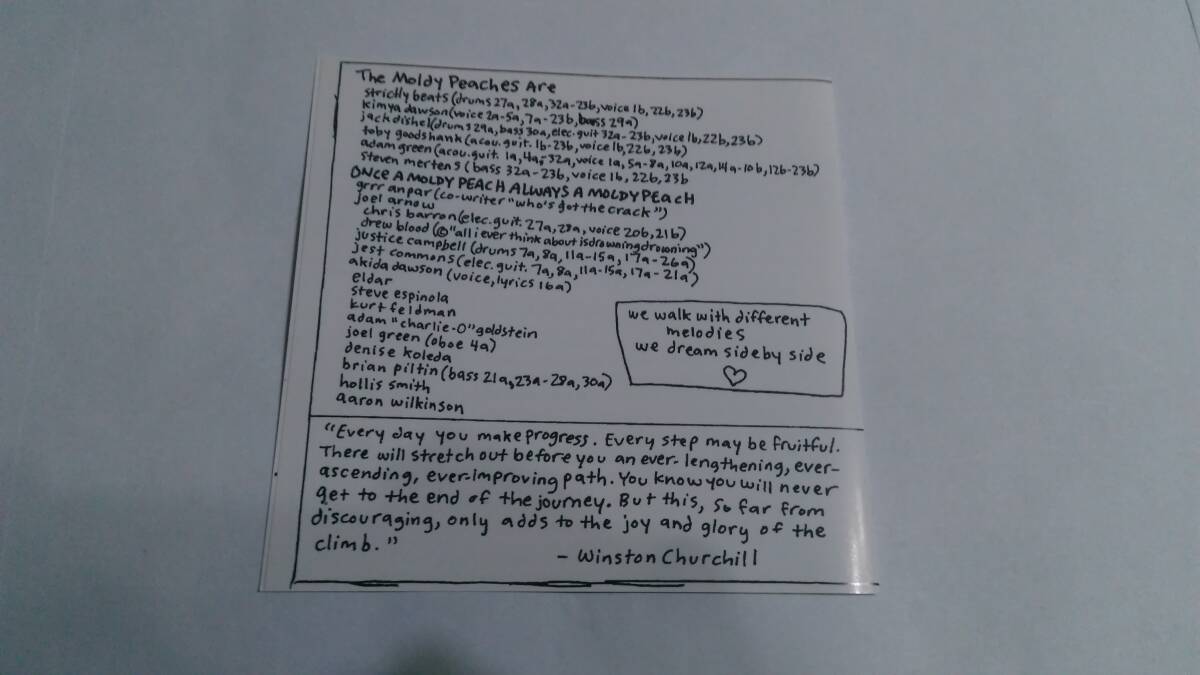 The Moldy Peaches Are
strictly beats (drums 27a, 28a, 32a-23b, voice 1b, 22b, 23b)
kimya dawson (voice 2a-5a, 7a-23b, bass 29a)
jack dishel (drums 29a, bass 30a, elec. guit 32a-23b, voice 1b, 22b, 23b)
toby goodshank (acou. guit. 1b-23b, voice 1b, 22b, 23b)
adam green (acou. guit. 1a, 4a-32a, voice 1a, 5a-8a, 10a, 12a, 14a-10b, 12b-23b)
steven mertens (bass 32a-23b, voice 1b, 22b, 23b
ONCE A MOLDY PEACH ALWAYS A MOLDY PEACH
grrr anpar (co-writer "who's got the crack")
joel arnow
chris barron (elec. guit. 27a, 28a, voice 20b, 21b)
drew blood (© "all i ever think about is drowning drowning")
justice campbell (drums 7a, 8a, 11a-15a, 17a-26a)
jest commons (elec. guit. 7a, 8a, 11a-15a, 17a-21a)
akida dawson (voice, lyrics 16a)
eldar
steve espinola
kurt feldman
adam "charlie-O" goldstein
joel green (oboe 4a)
denise koleda
brian piltin (bass 21a, 23a-28a, 30a)
hollis smith
aaron wilkinson
we walk with different
melodies
we dream side by side
♡
"Every day you make progress. Every step may be fruitful.
There will stretch out before you an ever-lengthening, ever-
ascending, ever-improving path. You know you will never
get to the end of the journey. But this, so far from
discouraging, only adds to the joy and glory of the
climb."
- Winston Churchill